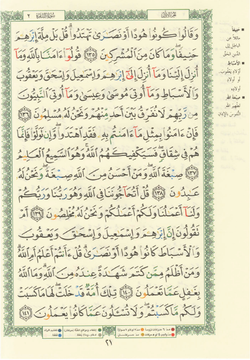 وَقَالُوا۟ كُونُوا۟ هُودًا أَوْ نَصَـٰرَىٰ تَهْتَدُوا۟ قُلْ بَلْ مِلَّةَ إِبْرَٰهِـۧمَ
حَنِيفًا وَمَا كَانَ مِنَ الْمُشْرِكِينَ ﴿١٣٥﴾ قُولُوٓا۟ ءَامَنَّا بِاللَّهِ وَمَآ
أُنزِلَ إِلَيْنَا وَمَآ أُنزِلَ إِلَىٰٓ إِبْرَٰهِـۧمَ وَإِسْمَـٰعِيلَ وَإِسْحَـٰقَ وَيَعْقُوبَ
وَالْأَسْبَاطِ وَمَآ أُوتِيَ مُوسَىٰ وَعِيسَىٰ وَمَآ أُوتِيَ النَّبِيُّونَ
مِن رَّبِّهِمْ لَا نُفَرِّقُ بَيْنَ أَحَدٍ مِّنْهُمْ وَنَحْنُ لَهُۥ مُسْلِمُونَ ﴿١٣٦﴾
فَإِنْ ءَامَنُوا۟ بِمِثْلِ مَآ ءَامَنتُم بِهِۦ فَقَدِ اهْتَدَوا۟ وَّإِن تَوَلَّوْا۟ فَإِنَّمَا
هُمْ فِي شِقَاقٍ فَسَيَكْفِيكَهُمُ اللَّهُ وَهُوَ السَّمِيعُ الْعَلِيمُ
﴿١٣٧﴾ صِبْغَةَ اللَّهِ وَمَنْ أَحْسَنُ مِنَ اللَّهِ صِبْغَةً وَنَحْنُ لَهُۥ
عَـٰبِدُونَ ﴿١٣٨﴾ قُلْ أَتُحَآجُّونَنَا فِي اللَّهِ وَهُوَ رَبُّنَا وَرَبُّكُمْ
وَلَنَآ أَعْمَـٰلُنَا وَلَكُمْ أَعْمَـٰلُكُمْ وَنَحْنُ لَهُۥ مُخْلِصُونَ ﴿١٣٩﴾ أَمْ
تَقُولُونَ إِنَّ إِبْرَٰهِـۧمَ وَإِسْمَـٰعِيلَ وَإِسْحَـٰقَ وَيَعْقُوبَ
وَالْأَسْبَاطَ كَانُوا۟ هُودًا أَوْ نَصَـٰرَىٰ قُلْ ءَأَنتُمْ أَعْلَمُ أَمِ اللَّهُ
وَمَنْ أَظْلَمُ مِمَّن كَتَمَ شَهَـٰدَةً عِندَهُۥ مِنَ اللَّهِ وَمَا اللَّهُ
بِغَـٰفِلٍ عَمَّا تَعْمَلُونَ ﴿١٤٠﴾ تِلْكَ أُمَّةٌ قَدْ خَلَتْ لَهَا مَا كَسَبَتْ
وَلَكُم مَّا كَسَبْتُمْ وَلَا تُسْـَٔلُونَ عَمَّا كَانُوا۟ يَعْمَلُونَ ﴿١٤١﴾
٢١